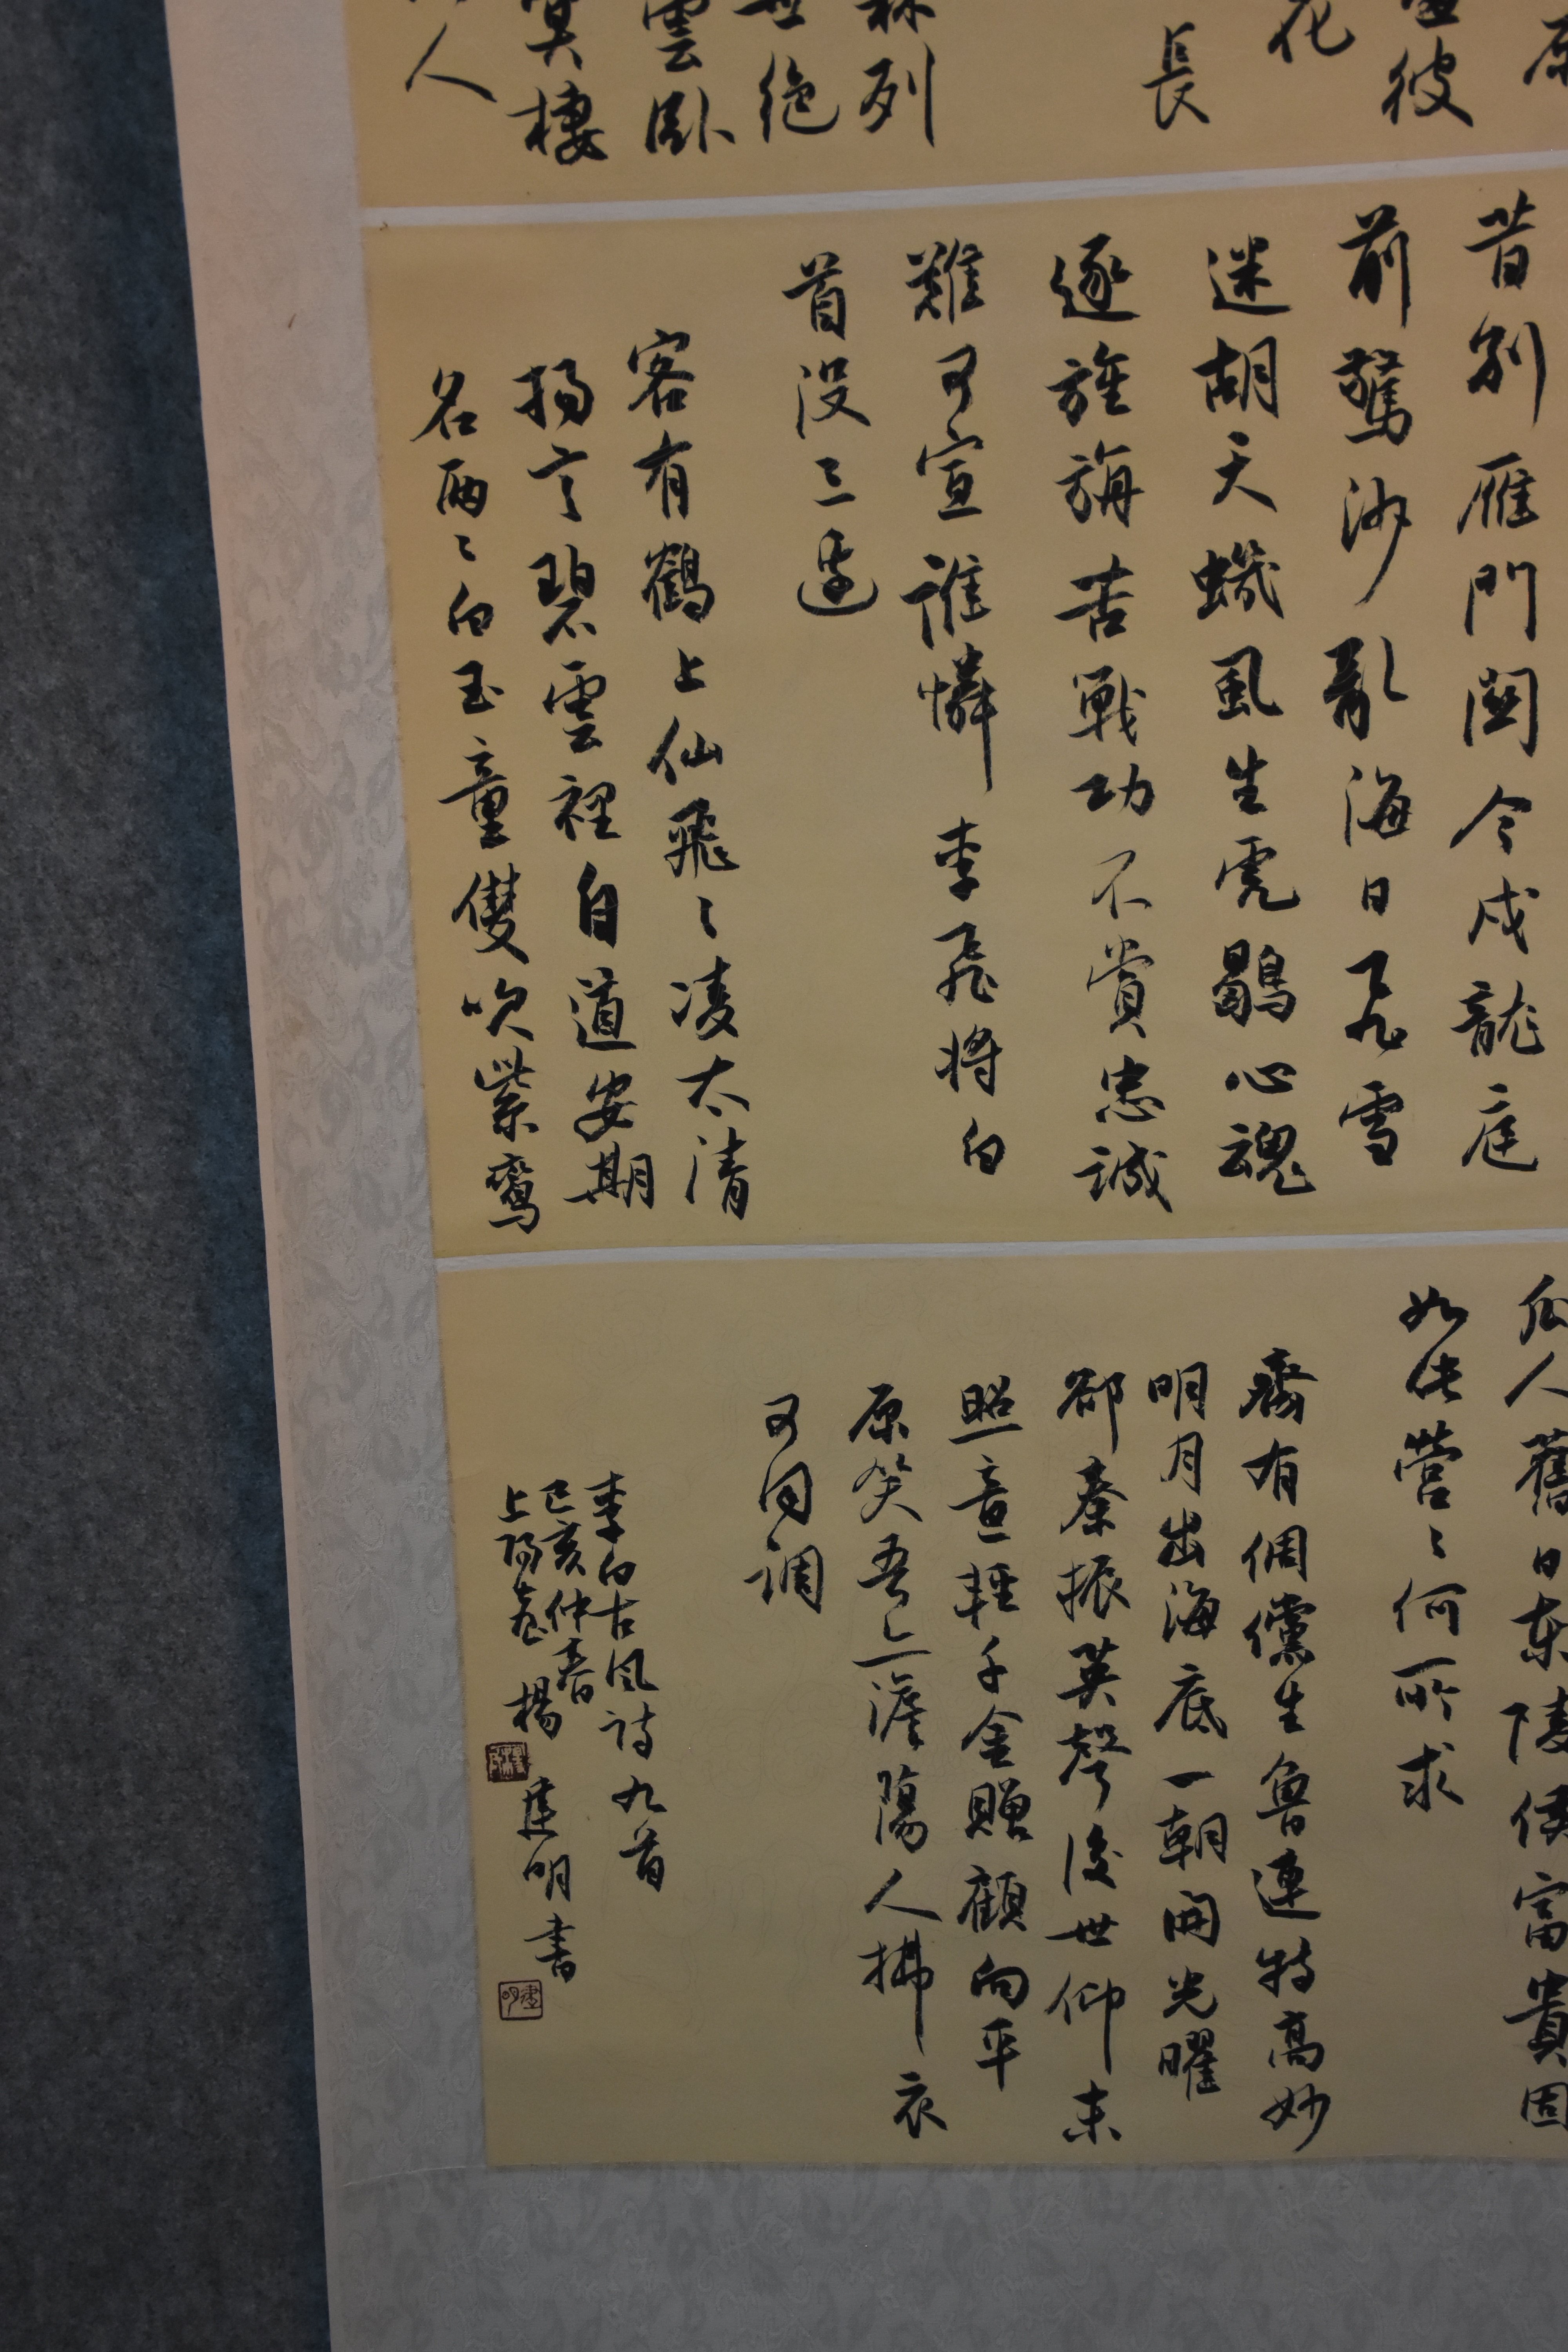 彼
花
長
森列
世绝
雲卧
冥棲
人
昔別雁門關今戍龍庭
前驚沙亂海日飛雪
迷胡天蟣虱生虎鶡心魂
逐旌旃苦戰功不賞忠誠
難可宣誰憐李飛將白
首没三邊
客有鶴上仙飛〻凌太清
揚言碧雲裡自道安期
名兩〻白玉童雙吹紫鸞
瓜人舊日東陵侯富貴固
如此營〻何所求
齊有倜儻生魯連特高妙
明月出海底一朝開光曜
卻秦振英聲後世仰末
照意輕千金贈顧向平
原笑吾亦澹蕩人拂衣
可同調
李白古風詩九首
己亥仲春
上陽臺楊建明書